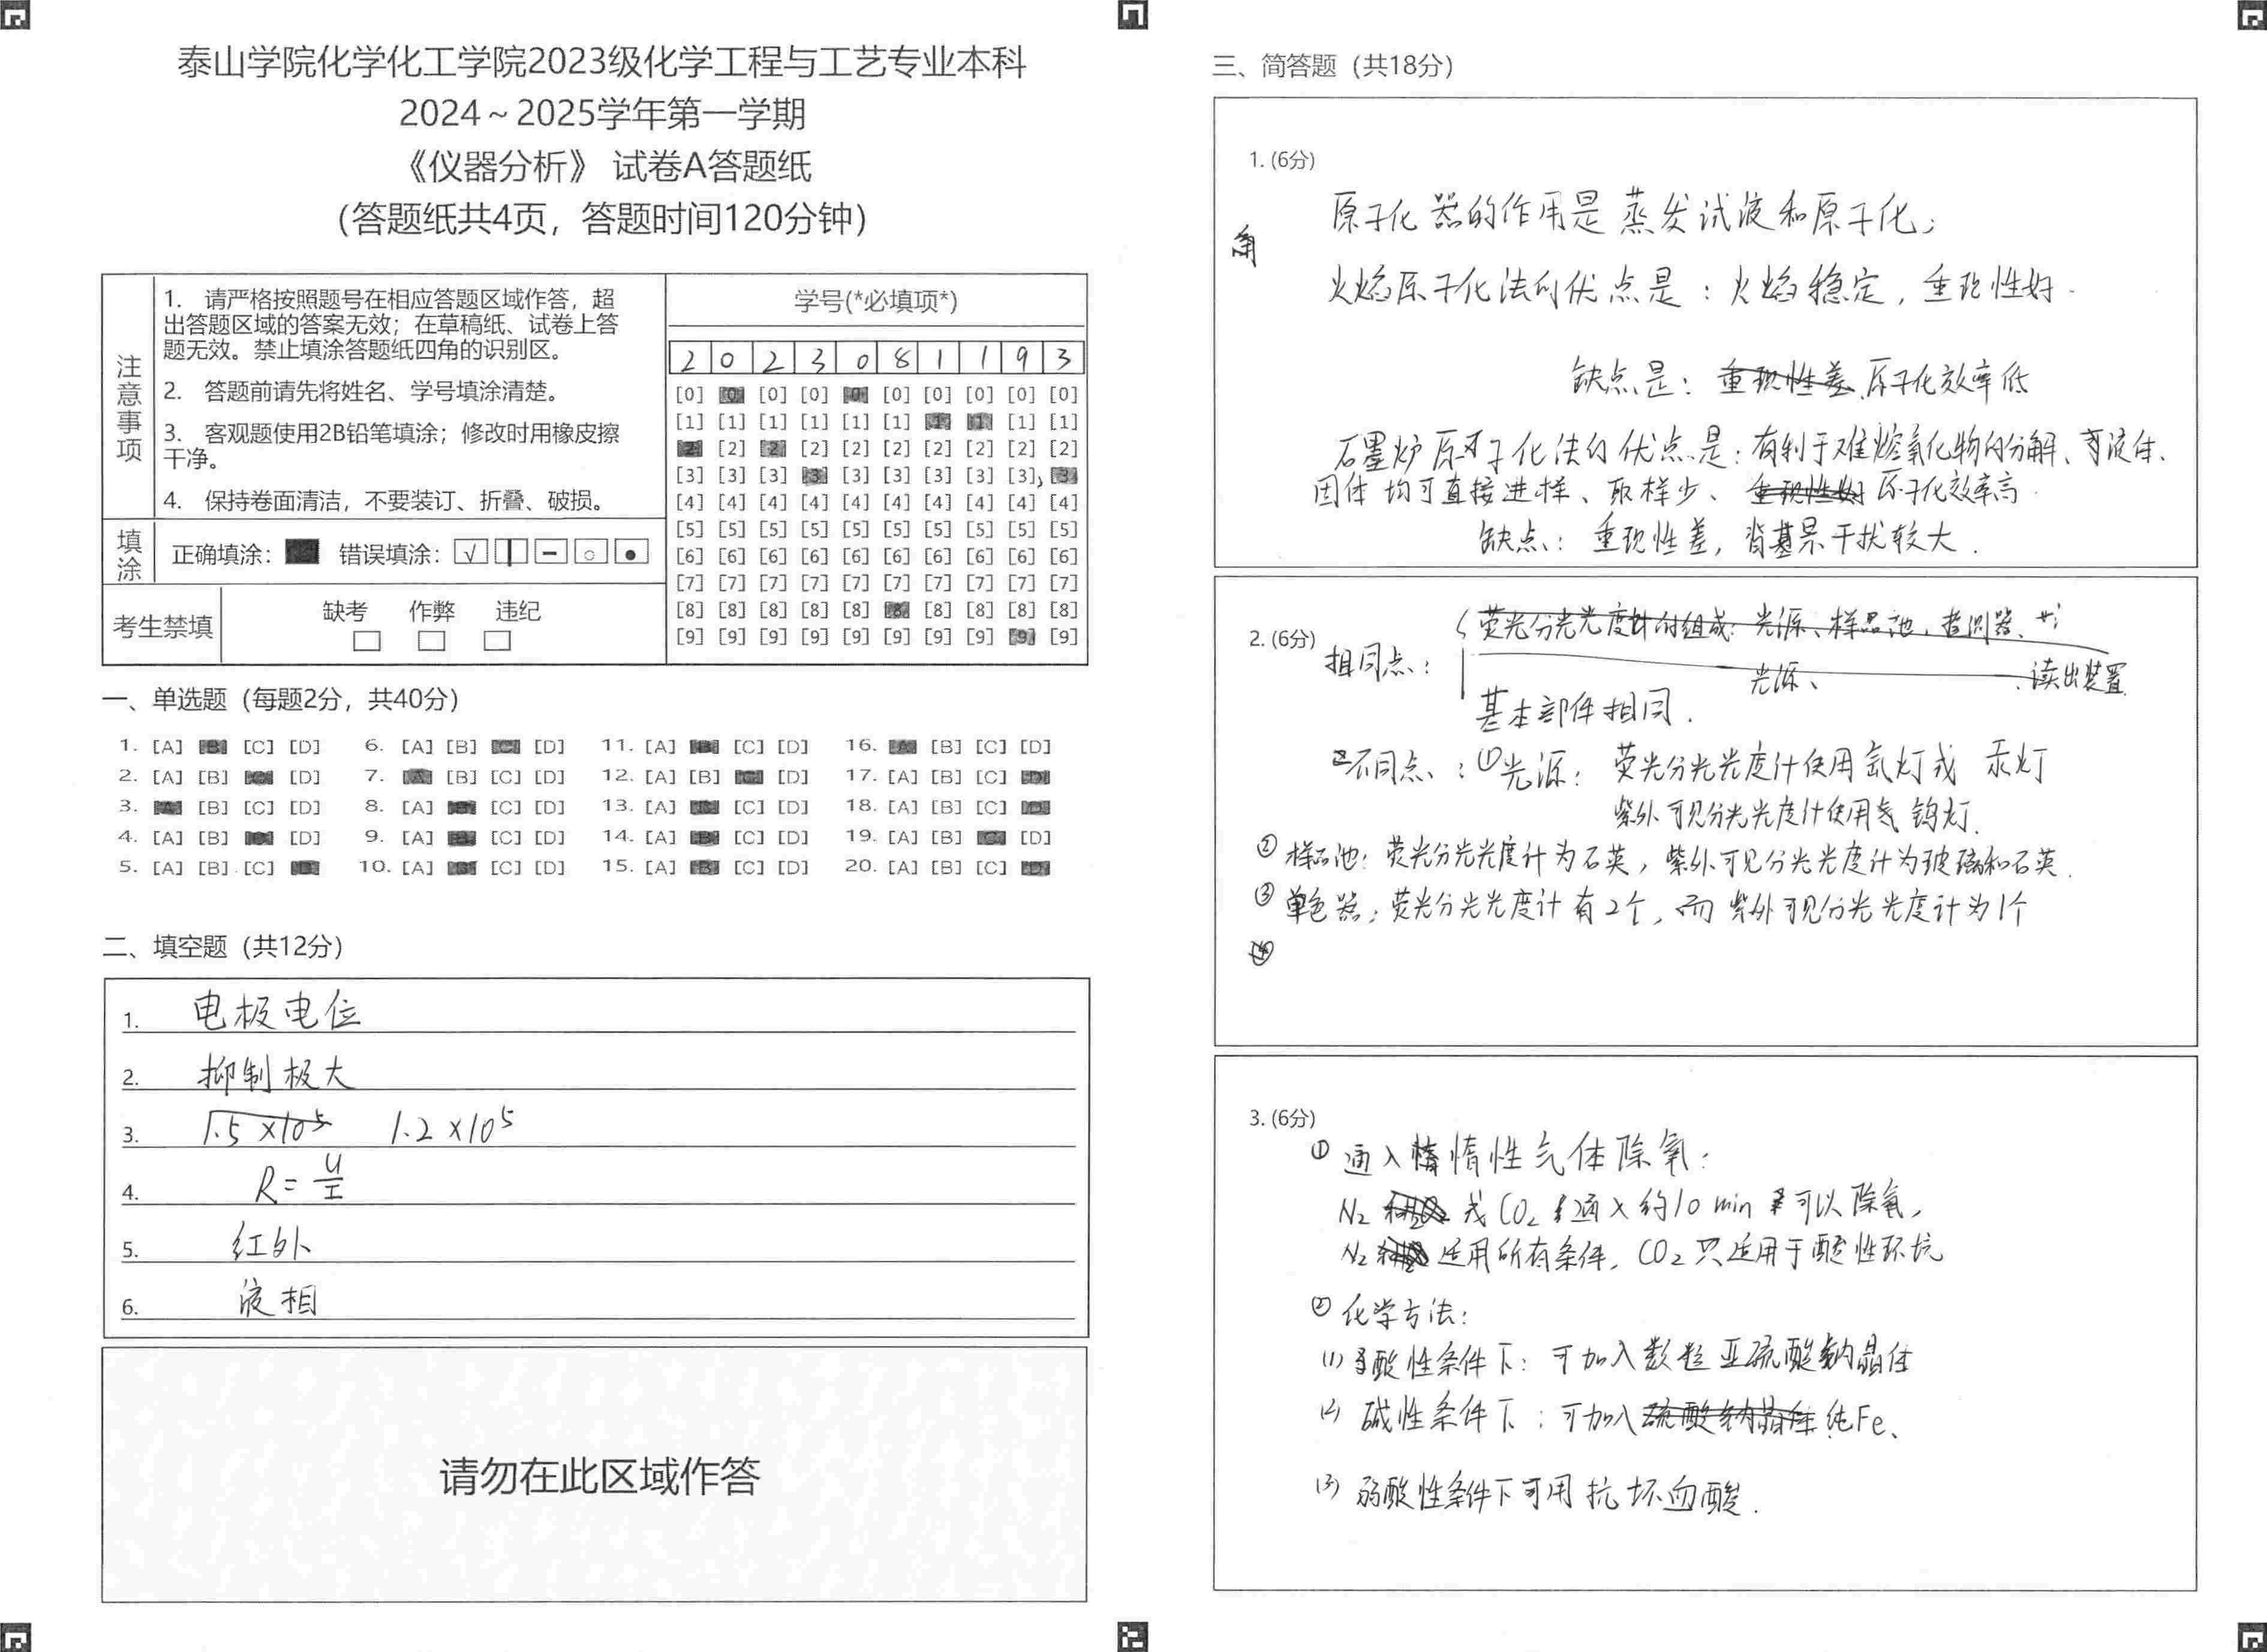 泰山学院化学化工学院2023级化学工程与工艺专业本科
2024～2025学年第一学期
《仪器分析》 试卷A答题纸
（答题纸共4页，答题时间120分钟）
注意事项
1. 请严格按照题号在相应答题区域作答，超
出答题区域的答案无效；在草稿纸、试卷上答
题无效。禁止填涂答题纸四角的识别区。
2. 答题前请先将姓名、学号填涂清楚。
3. 客观题使用2B铅笔填涂；修改时用橡皮擦
干净。
4. 保持卷面清洁，不要装订、折叠、破损。
填涂 正确填涂： 错误填涂：
考生禁填 缺考 作弊 违纪
学号(*必填项*)
2 0 2 3 0 8 1 1 9 3
[0] [0] [0] [0] [0] [0] [0] [0] [0] [0]
[1] [1] [1] [1] [1] [1] [1] [1] [1] [1]
[2] [2] [2] [2] [2] [2] [2] [2] [2] [2]
[3] [3] [3] [3] [3] [3] [3] [3] [3] [3]
[4] [4] [4] [4] [4] [4] [4] [4] [4] [4]
[5] [5] [5] [5] [5] [5] [5] [5] [5] [5]
[6] [6] [6] [6] [6] [6] [6] [6] [6] [6]
[7] [7] [7] [7] [7] [7] [7] [7] [7] [7]
[8] [8] [8] [8] [8] [8] [8] [8] [8] [8]
[9] [9] [9] [9] [9] [9] [9] [9] [9] [9]
一、单选题（每题2分，共40分）
1. [A] [B] [C] [D] 6. [A] [B] [C] [D] 11. [A] [B] [C] [D] 16. [A] [B] [C] [D]
2. [A] [B] [C] [D] 7. [A] [B] [C] [D] 12. [A] [B] [C] [D] 17. [A] [B] [C] [D]
3. [A] [B] [C] [D] 8. [A] [B] [C] [D] 13. [A] [B] [C] [D] 18. [A] [B] [C] [D]
4. [A] [B] [C] [D] 9. [A] [B] [C] [D] 14. [A] [B] [C] [D] 19. [A] [B] [C] [D]
5. [A] [B] [C] [D] 10. [A] [B] [C] [D] 15. [A] [B] [C] [D] 20. [A] [B] [C] [D]
二、填空题（共12分）
1. 电极电位
2. 抑制极大
3. 1.5×10⁵ 1.2×10⁵
4. R=U/I
5. 红外
6. 液相
请勿在此区域作答
三、简答题（共18分）
1. (6分)
原子化器的作用是蒸发试液和原子化；
火焰原子化法的优点是：火焰稳定，重现性好.
缺点是：重现性差、原子化效率低
石墨炉原子化法的优点是：有利于难熔氧化物的分解、液体、
固体均可直接进样、取样少、重现性好 原子化效率高.
缺点：重现性差，背景干扰较大.
2. (6分)
相同点：荧光分光光度计的组成：光源、样品池、检测器、
光源、 读出装置
基本部件相同.
不同点：①光源：荧光分光光度计使用氙灯或 汞灯
紫外可见分光光度计使用氢 钨灯.
② 样品池：荧光分光光度计为石英，紫外可见分光光度计为玻璃和石英.
③ 单色器：荧光分光光度计有2个，而紫外可见分光光度计为1个
④
3. (6分)
① 通入惰性气体除氧：
N₂ 或 CO₂ 通入约10 min 可以除氧，
N₂ 适用所有条件，CO₂ 只适用于酸性环境
② 化学方法：
(1) 酸性条件下：可加入数粒亚硫酸钠晶体
(2) 碱性条件下：可加入硫酸钠晶体 纯Fe、
(3) 弱酸性条件下可用抗坏血酸.